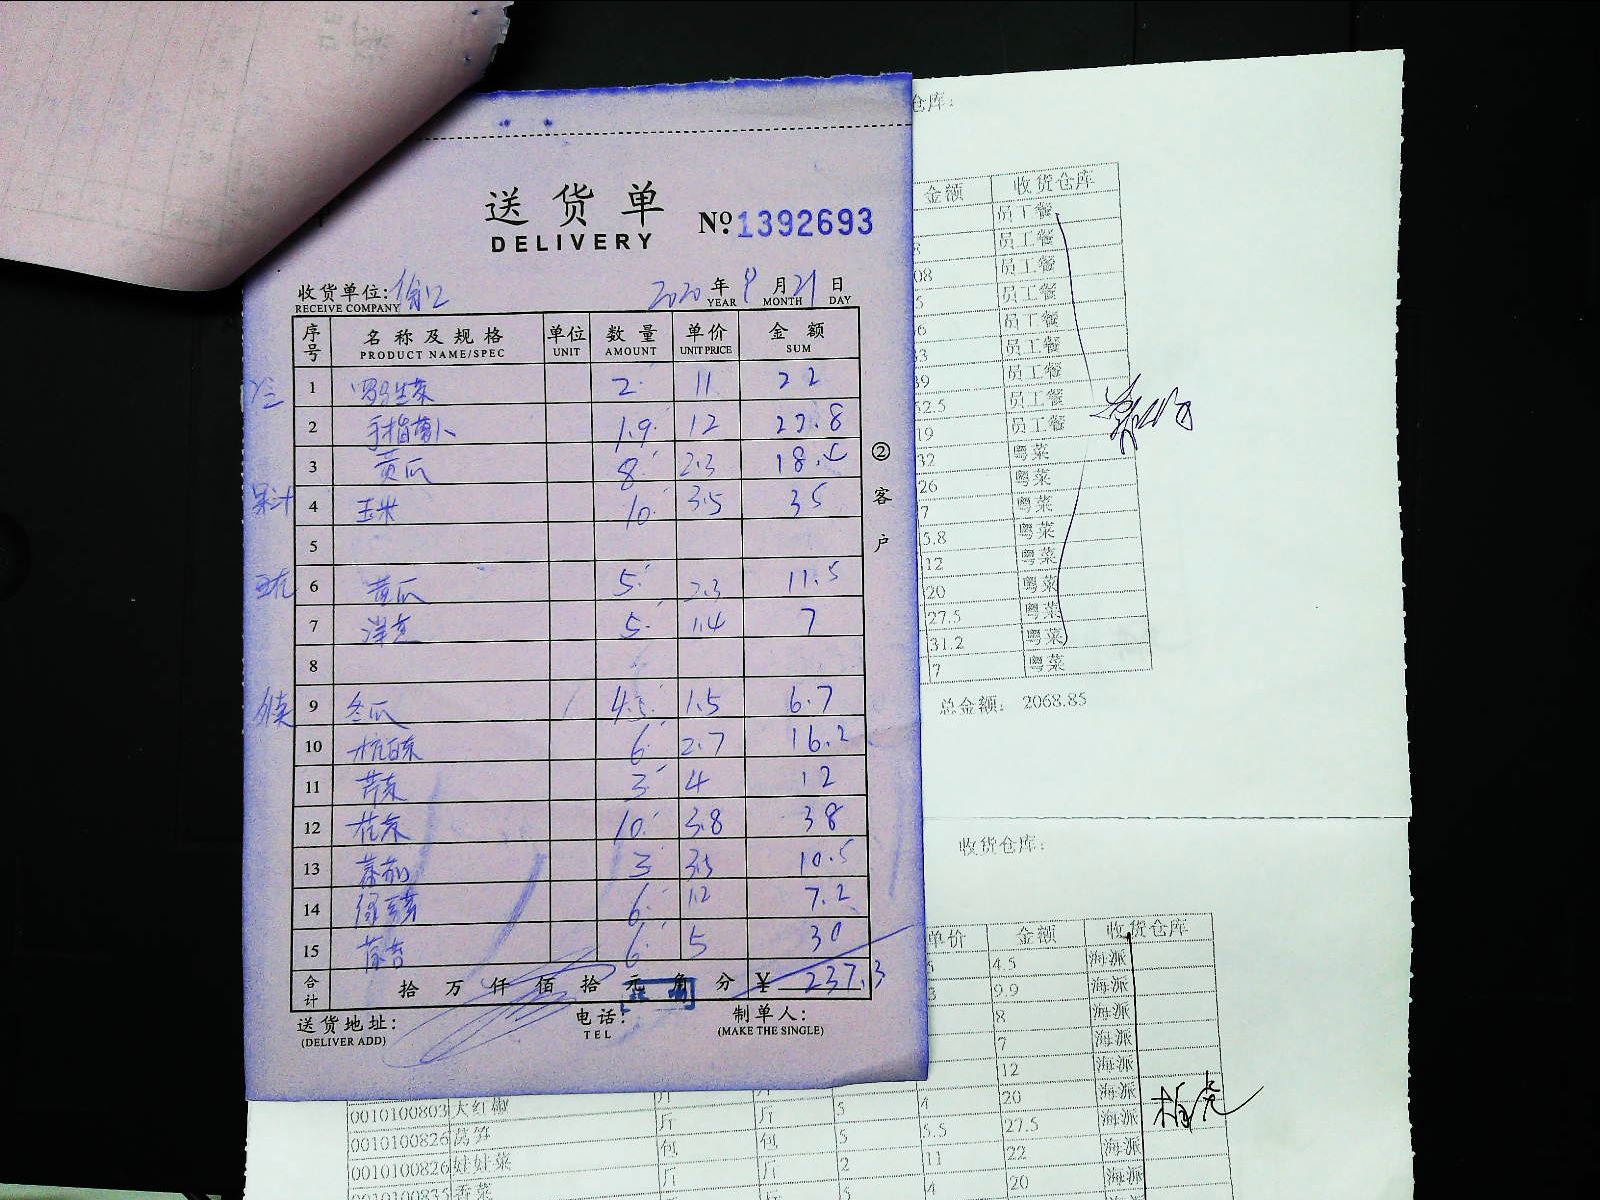 送货单
DELIVERY
No 1392693
收货单位:
RECEIVE COMPANY
2020 年 9 月 21 日
YEAR MONTH DAY
序号 名称及规格 单位 数量 单价 金额
PRODUCT NAME/SPEC UNIT AMOUNT UNIT PRICE SUM
1 罗生菜 2 11 22
2 手指萝卜 1.9 12 22.8
3 黄瓜 8 2.3 18.4
果汁 4 玉米 10 3.5 35
5
6 黄瓜 5 2.3 11.5
7 洋芝 5 1.4 7
8
9 冬瓜 4.5 1.5 6.7
10 杭白菜 6 2.7 16.2
11 芹菜 3 4 12
12 花菜 10 3.8 38
13 蕃茄 3 3.5 10.5
14 绿豆芽 6 1.2 7.2
15 6 5 30
合计 拾 万 仟 佰 拾 元 角 分 ¥ 237.3
② 客户
送货地址:
(DELIVER ADD)
电话:
TEL
制单人:
(MAKE THE SINGLE)
仓库:
金额 收货仓库
员工餐
员工餐
08 员工餐
5 员工餐
6 员工餐
员工餐
员工餐
52.5 员工餐
19 员工餐
32 粤菜
26 粤菜
7 粤菜
5.8 粤菜
12 粤菜
20 粤菜
27.5 粤菜
31.2 粤菜
7 粤菜
总金额: 2068.85
收货仓库:
单价 金额 收货仓库
4.5 海派
9.9 海派
8 海派
7 海派
12 海派
0010100803 大红椒 斤 斤 5 4 20 海派
0010100826 莴笋 斤 斤 5 5.5 27.5 海派
0010100826 娃娃菜 包 包 2 11 22 海派
0010100835 香菜 斤 斤 5 4 20 海派